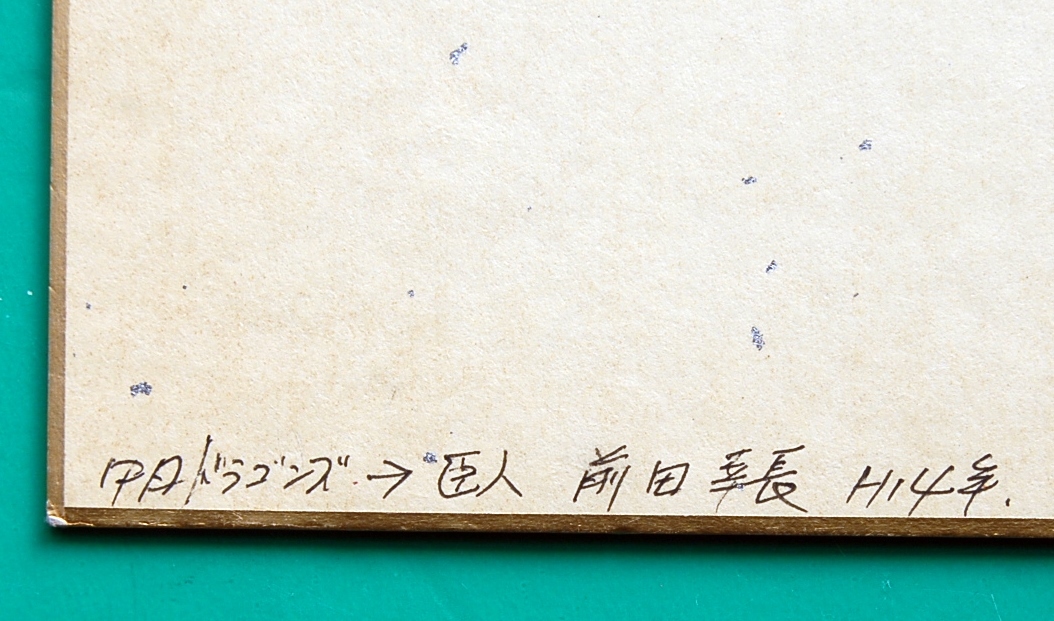 中日ドラゴンズ→巨人 前田幸長 H14年.